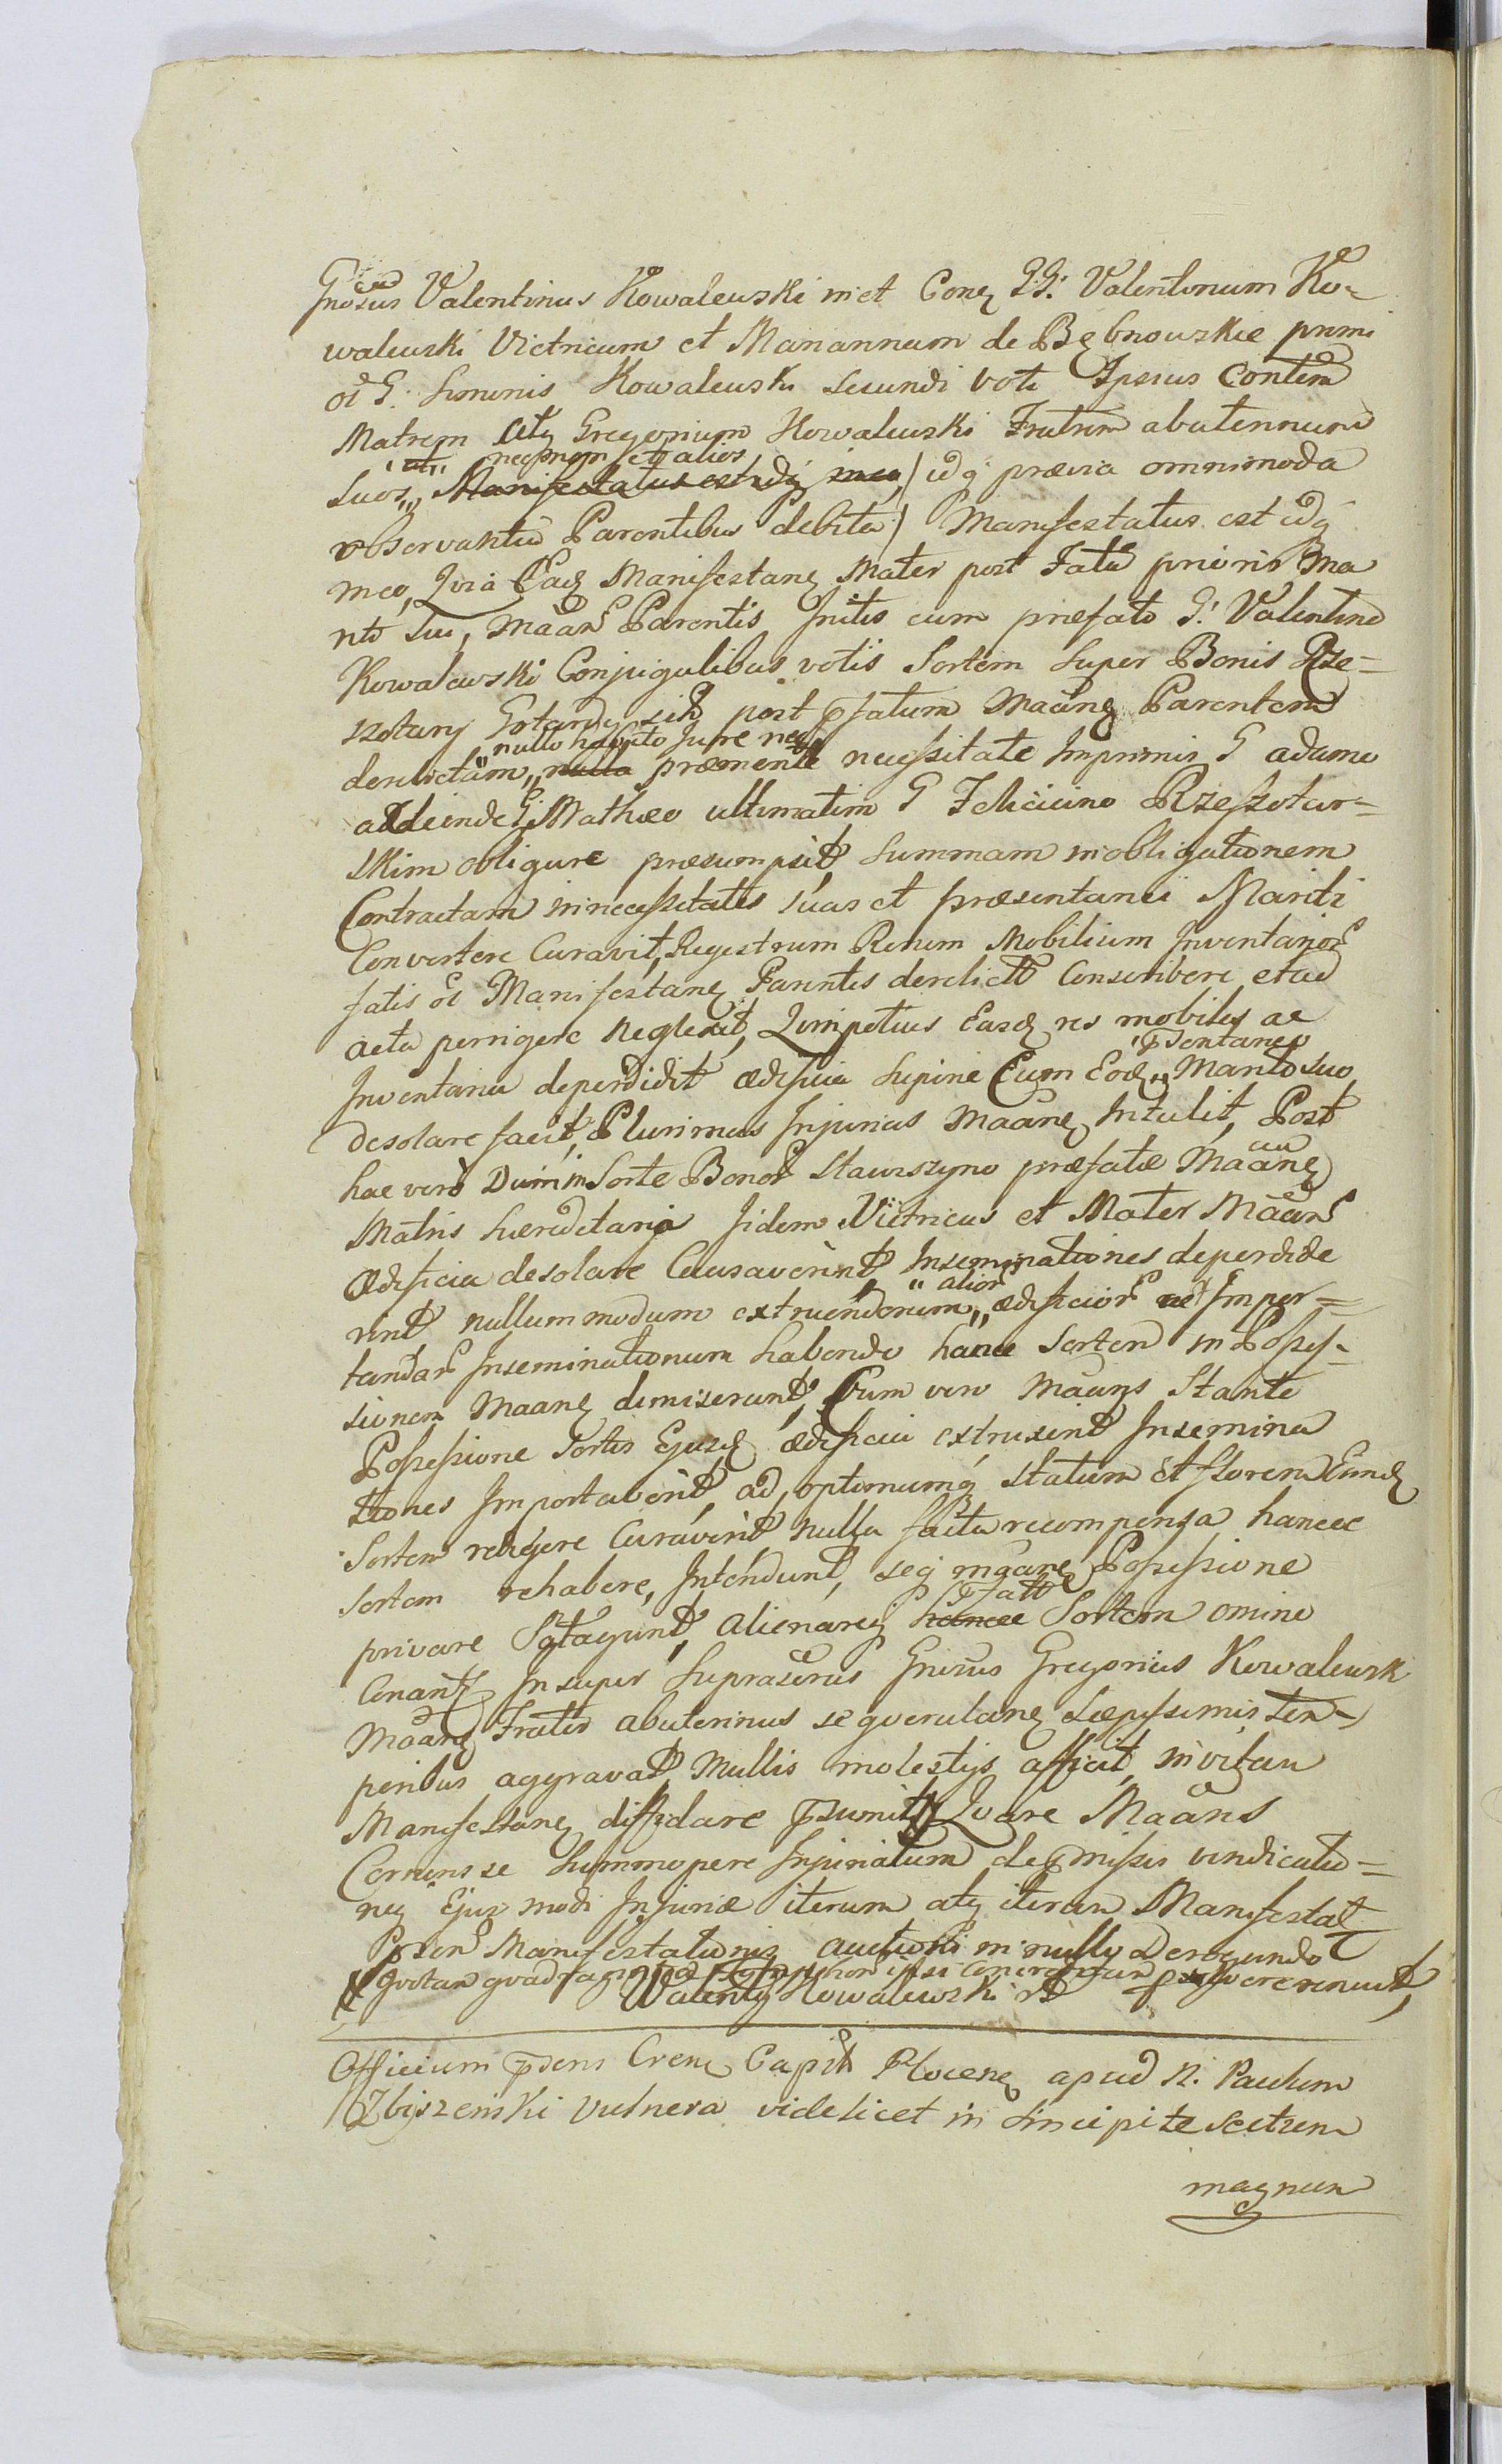 Gnosus Valentinus Kowalewski in et Conq GG: Valentinum Ko=
walewski Vitricum et Mariannam de Bębnowskie primi
G: Simonis Kowalewski secundi voti Ipsius Contem
Matrem atq Gregorium Kowalewski Fratrem abuterinum
"et" necnon et alios
suos,, Manifestatus est idq in eo,/ idq prævia omnimoda
observantia Parentibus debita/ Manifestatus est idq
in eo, Quia Eadq Manifestanq Mater post Fata prioris Ma
riti sui, Maan Parentis Initis cum præfato G: Valentino
Kowalewski Conjugalibus votis Sortem super Bonis Rze=
szotary Gotardy sitt post fatum Maanq Parentem
nullo habito Jure neq
derelictam,, nulla præmente necessitate Imprimis G Adamo
addeinde G: Mathæo ultimatim G Feliciano Rzeszotar=
skim obligare præsumpsit, summam in obligationem
Contractam in necessitates suas et præsentanei Mariti
Convertere Curavit, Regestrum Rerum Mobilium Inventarior
fatis Manifestanq Parentis derelict Conscribere et ad
acta porrigere Neglexit, Quinpotius Easdq res mobiles ac
præsentaneo
Inventaria deperdidit ædificia supine Cum Eodq,, Marito suo
desolare facit, Plurimas Injurias Maanq Intulit, Post
hac vero Dum in Sorte Bonor Stawiszyno præfatæ Maanq
Matris hæreditaria Iidem Vitricus et Mater Maan
Ædificia desolare Causaverint Inseminationes deperdide
" alior
runt nullum modum extruendorum,, ædificior et Impor=
tandar Inseminationum habendo hance Sortem in Posses=
sionem Maanq dimiserunt, Cum vero Maans Stante
Possessione Sortis Ejusdq ædificia extruxerit Insemina
tiones Importaverit, ad, optimumq statum et florem Eandq
Sortem redigere Curaverit nulla facta recompensa hancce
Sortem rehabere, Intendunt, seq maanq Possessione
fatt
privare Satagunt, alienareq hancce Sortem omino
Conant Insuper suprascrus Gnosus Gregorius Kowalewsk
Maanq Frater abuterinus se qverulanq sæpissimis tem=
poribus aggravat Multis molestijs afficit, in vitam
Manifestanq diffidare sumit,# Qvare Maans
Cernens se summopere Injuriatum de missis vindicatio=
neq Ejus modi Injuriæ iterum atq iterum Manifestat
Psens Manifestationis auctioni in nullo Derogando
Walenty Kowalewski
Officium psens Crenq Capit Plocenq apud N. Paulum
Zbijszenski vulnera videlicet in sincipite sectum
magnum